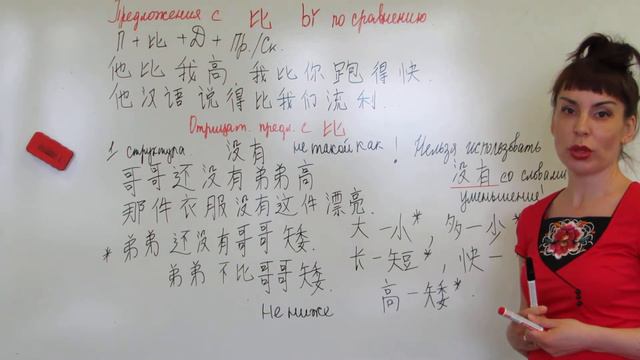 Предложения с 比 bǐ по сравнению
П + 比 + Д + Пр./Ск.
他比我高，我比你跑得快．
他汉语说得比我们流利．
Отрицат. предл. с 比
1 структура 没有 не такой как ! Нельзя использвать
哥哥还没有弟弟高 没有 со словами
уменьшение!
那件衣服没有这件漂亮．
大－小*，多－少*
*弟弟还没有哥哥矮． 长－短*，快－
弟弟不比哥哥矮． 高－矮*．
Не ниже